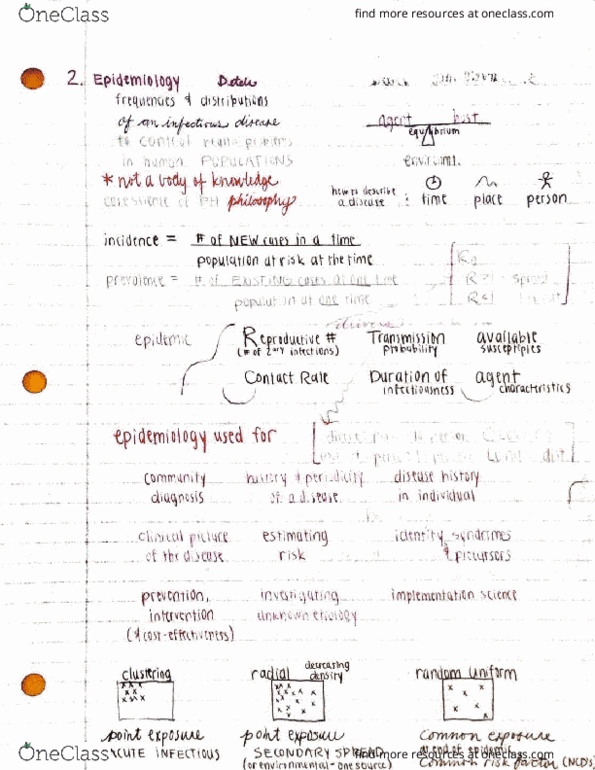 OneClass
find more resources at oneclass.com
2. Epidemiology
frequencies & distributions
of an infectious disease
to control health problems
in human POPULATIONS
* not a body of knowledge
philosophy
agent host
equilibrium
how to describe
a disease : time place person
incidence = # of NEW cases in a time
population at risk at the time
prevalence = # of EXISTING cases at one time
population at one time
epidemic
Reproductive #
(# of 2ary infections)
Transmission
probability
available
Contact Rate
Duration of
infectiousness
agent
characteristics
epidemiology used for
community
diagnosis
history & periodicity
of a disease
disease history
in individual
clinical picture
of the disease
estimating
risk
identify syndromes
&
prevention,
intervention
(& cost-effectiveness)
investigating
unknown etiology
implementation science
clustering
point exposure
ACUTE INFECTIOUS
radial decreasing
density
point exposure
SECONDARY SPREAD
(or environmental-one source)
random uniform
common exposure
common risk factor (NCDs)
OneClass
find more resources at oneclass.com